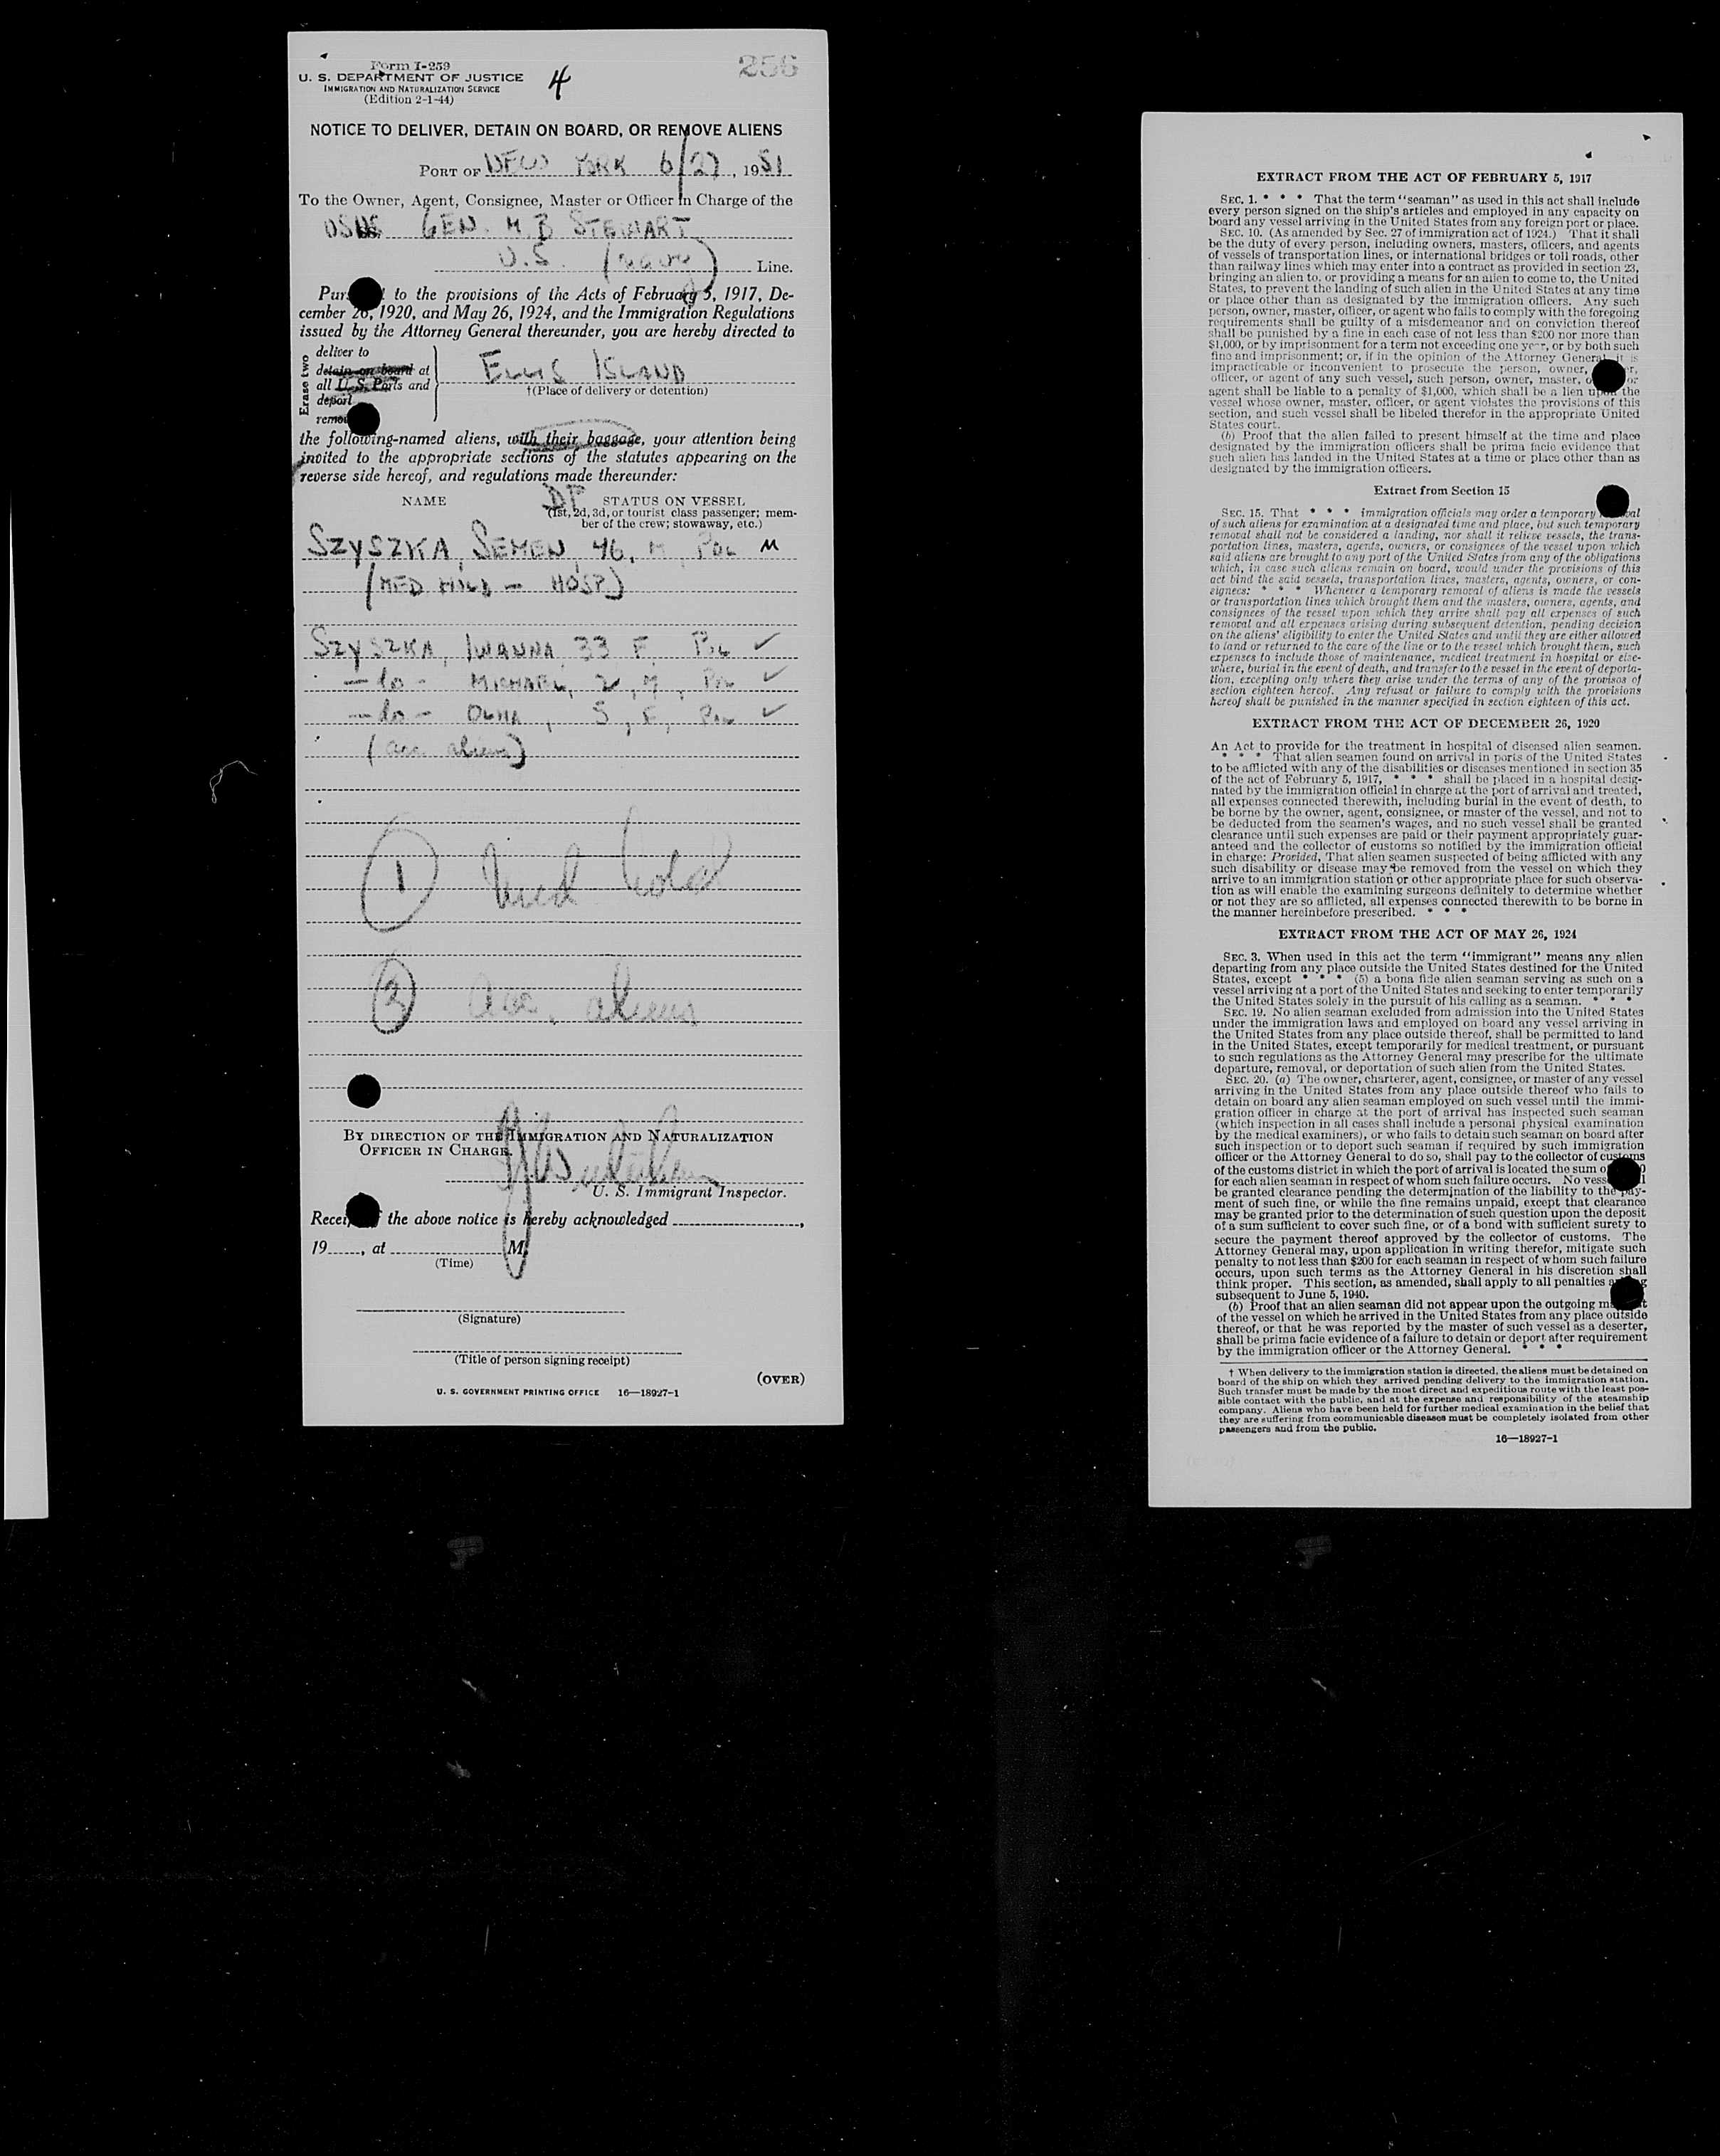 Form I-259
U. S. DEPARTMENT OF JUSTICE
IMMIGRATION AND NATURALIZATION SERVICE
(Edition 2-1-44)
4
256
NOTICE TO DELIVER, DETAIN ON BOARD, OR REMOVE ALIENS
PORT OF NEW YORK 6/27, 1951
To the Owner, Agent, Consignee, Master or Officer in Charge of the
GEN. M B STEWART
U.S. (NAVY) Line.
to the provisions of the Acts of February 5, 1917, De-
cember 26, 1920, and May 26, 1924, and the Immigration Regulations
issued by the Attorney General thereunder, you are hereby directed to
Erase two
deliver to
detain on board at
all U. S. Ports and
deport
ELLIS ISLAND
†(Place of delivery or detention)
the following-named aliens, with their baggage, your attention being
invited to the appropriate sections of the statutes appearing on the
reverse side hereof, and regulations made thereunder:
NAME DP STATUS ON VESSEL
(1st, 2d, 3d, or tourist class passenger; mem-
ber of the crew; stowaway, etc.)
SZYSZKA, SEMEN, 46, M, POL M
(MED HOLD - HOSP)
SZYSZKA, IWANNA, 33 F, POL ✓
-do- MICHAEL, 2, M, POL ✓
-do- OLHA, 5, F, POL ✓
(acc. aliens)
1 Med hold
3 acc. aliens
BY DIRECTION OF THE IMMIGRATION AND NATURALIZATION
OFFICER IN CHARGE.
U. S. Immigrant Inspector.
the above notice is hereby acknowledged
19 , at M.
(Time)
(Signature)
(Title of person signing receipt)
(OVER)
U. S. GOVERNMENT PRINTING OFFICE 16—18927-1
EXTRACT FROM THE ACT OF FEBRUARY 5, 1917
SEC. 1. * * * That the term "seaman" as used in this act shall include
every person signed on the ship's articles and employed in any capacity on
board any vessel arriving in the United States from any foreign port or place.
SEC. 10. (As amended by Sec. 27 of immigration act of 1924.) That it shall
be the duty of every person, including owners, masters, officers, and agents
of vessels of transportation lines, or international bridges or toll roads, other
than railway lines which may enter into a contract as provided in section 23,
bringing an alien to, or providing a means for an alien to come to, the United
States, to prevent the landing of such alien in the United States at any time
or place other than as designated by the immigration officers. Any such
person, owner, master, officer, or agent who fails to comply with the foregoing
requirements shall be guilty of a misdemeanor and on conviction thereof
shall be punished by a fine in each case of not less than $200 nor more than
$1,000, or by imprisonment for a term not exceeding one year, or by both such
fine and imprisonment; or, if in the opinion of the Attorney General, it is
impracticable or inconvenient to prosecute the person, owner,
officer, or agent of any such vessel, such person, owner, master, or
agent shall be liable to a penalty of $1,000, which shall be a lien upon the
vessel whose owner, master, officer, or agent violates the provisions of this
section, and such vessel shall be libeled therefor in the appropriate United
States court.
(b) Proof that the alien failed to present himself at the time and place
designated by the immigration officers shall be prima facie evidence that
such alien has landed in the United States at a time or place other than as
designated by the immigration officers.
Extract from Section 15
SEC. 15. That * * * immigration officials may order a temporary
of such aliens for examination at a designated time and place, but such temporary
removal shall not be considered a landing, nor shall it relieve vessels, the trans-
portation lines, masters, agents, owners, or consignees of the vessel upon which
said aliens are brought to any port of the United States from any of the obligations
which, in case such aliens remain on board, would under the provisions of this
act bind the said vessels, transportation lines, masters, agents, owners, or con-
signees: * * * Whenever a temporary removal of aliens is made the vessels
or transportation lines which brought them and the masters, owners, agents, and
consignees of the vessel upon which they arrive shall pay all expenses of such
removal and all expenses arising during subsequent detention, pending decision
on the aliens' eligibility to enter the United States and until they are either allowed
to land or returned to the care of the line or to the vessel which brought them, such
expenses to include those of maintenance, medical treatment in hospital or else-
where, burial in the event of death, and transfer to the vessel in the event of deporta-
tion, excepting only where they arise under the terms of any of the provisos of
section eighteen hereof. Any refusal or failure to comply with the provisions
hereof shall be punished in the manner specified in section eighteen of this act.
EXTRACT FROM THE ACT OF DECEMBER 26, 1920
An Act to provide for the treatment in hospital of diseased alien seamen.
* * * That alien seamen found on arrival in ports of the United States
to be afflicted with any of the disabilities or diseases mentioned in section 35
of the act of February 5, 1917, * * * shall be placed in a hospital desig-
nated by the immigration official in charge at the port of arrival and treated,
all expenses connected therewith, including burial in the event of death, to
be borne by the owner, agent, consignee, or master of the vessel, and not to
be deducted from the seamen's wages, and no such vessel shall be granted
clearance until such expenses are paid or their payment appropriately guar-
anteed and the collector of customs so notified by the immigration official
in charge: Provided, That alien seamen suspected of being afflicted with any
such disability or disease may be removed from the vessel on which they
arrive to an immigration station or other appropriate place for such observa-
tion as will enable the examining surgeons definitely to determine whether
or not they are so afflicted, all expenses connected therewith to be borne in
the manner hereinbefore prescribed. * * *
EXTRACT FROM THE ACT OF MAY 26, 1924
SEC. 3. When used in this act the term "immigrant" means any alien
departing from any place outside the United States destined for the United
States, except * * * (5) a bona fide alien seaman serving as such on a
vessel arriving at a port of the United States and seeking to enter temporarily
the United States solely in the pursuit of his calling as a seaman. * * *
SEC. 19. No alien seaman excluded from admission into the United States
under the immigration laws and employed on board any vessel arriving in
the United States from any place outside thereof, shall be permitted to land
in the United States, except temporarily for medical treatment, or pursuant
to such regulations as the Attorney General may prescribe for the ultimate
departure, removal, or deportation of such alien from the United States.
SEC. 20. (a) The owner, charterer, agent, consignee, or master of any vessel
arriving in the United States from any place outside thereof who fails to
detain on board any alien seaman employed on such vessel until the immi-
gration officer in charge at the port of arrival has inspected such seaman
(which inspection in all cases shall include a personal physical examination
by the medical examiners), or who fails to detain such seaman on board after
such inspection or to deport such seaman if required by such immigration
officer or the Attorney General to do so, shall pay to the collector of customs
of the customs district in which the port of arrival is located the sum of
for each alien seaman in respect of whom such failure occurs. No vessel
be granted clearance pending the determination of the liability to the pay-
ment of such fine, or while the fine remains unpaid, except that clearance
may be granted prior to the determination of such question upon the deposit
of a sum sufficient to cover such fine, or of a bond with sufficient surety to
secure the payment thereof approved by the collector of customs. The
Attorney General may, upon application in writing therefor, mitigate such
penalty to not less than $200 for each seaman in respect of whom such failure
occurs, upon such terms as the Attorney General in his discretion shall
think proper. This section, as amended, shall apply to all penalties arising
subsequent to June 5, 1940.
(b) Proof that an alien seaman did not appear upon the outgoing
of the vessel on which he arrived in the United States from any place outside
thereof, or that he was reported by the master of such vessel as a deserter,
shall be prima facie evidence of a failure to detain or deport after requirement
by the immigration officer or the Attorney General. * * *
† When delivery to the immigration station is directed, the aliens must be detained on
board of the ship on which they arrived pending delivery to the immigration station.
Such transfer must be made by the most direct and expeditious route with the least pos-
sible contact with the public, and at the expense and responsibility of the steamship
company. Aliens who have been held for further medical examination in the belief that
they are suffering from communicable diseases must be completely isolated from other
passengers and from the public.
16—18927-1